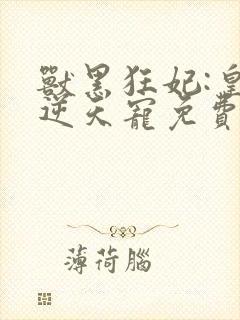 獸黑狂妃:皇
逆天寵免費
薄荷腦